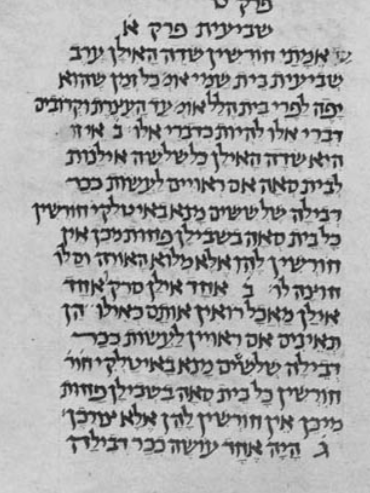 פרק ט
שביעית פרק א׳
אמתי חורשין שדה האילן ערב
שביעית בית שמיי אומ׳ כל זמן שהוא
יפה לפרי בית הלל אומ׳ עד העצרת וקרובים
דברי אלו להיות כדברי אלו׳ ב איזו
היא שדה האילן כל שלשה אילנות
לבית סאה אם ראויים לעשות ככר
דבילה של ששים מנא באיטלקי חורשין
כל בית סאה בשבילן פחות מכן אין
חורשין להן אלא מלוא האורה וסלו
חוצה לו׳ ב אחד אילן סרק ואחד
אילן מאכל רואין אותם כאילו הן
תאינים אם ראויין לעשות ככר
דבילה שלששים מנא באיטלקי חור׳
חורשין כל בית סאה בשבילן פחות
מיכן אין חורשין להן אלא צורכן׳
ג היה אחד עושה ככר דבילה